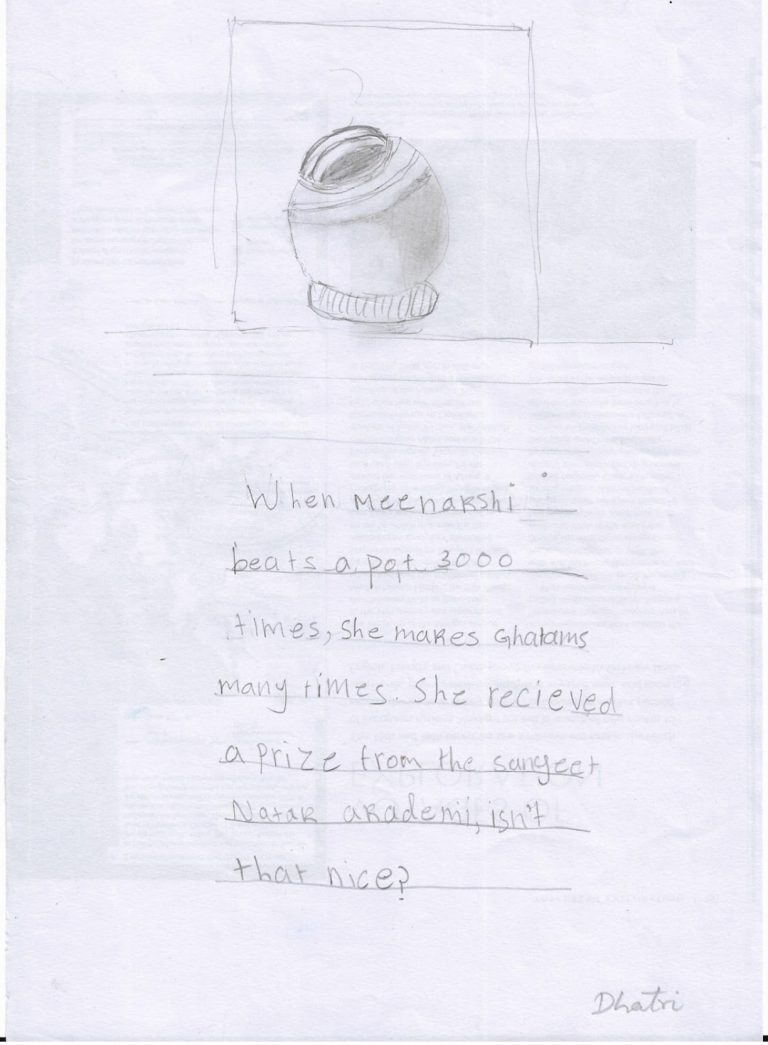 When Meenakshi
beats a pot 3000
times, she makes Ghatams
many times. She recieved
a prize from the sangeet
Natak akademi, isn't
that nice?
Dhatri